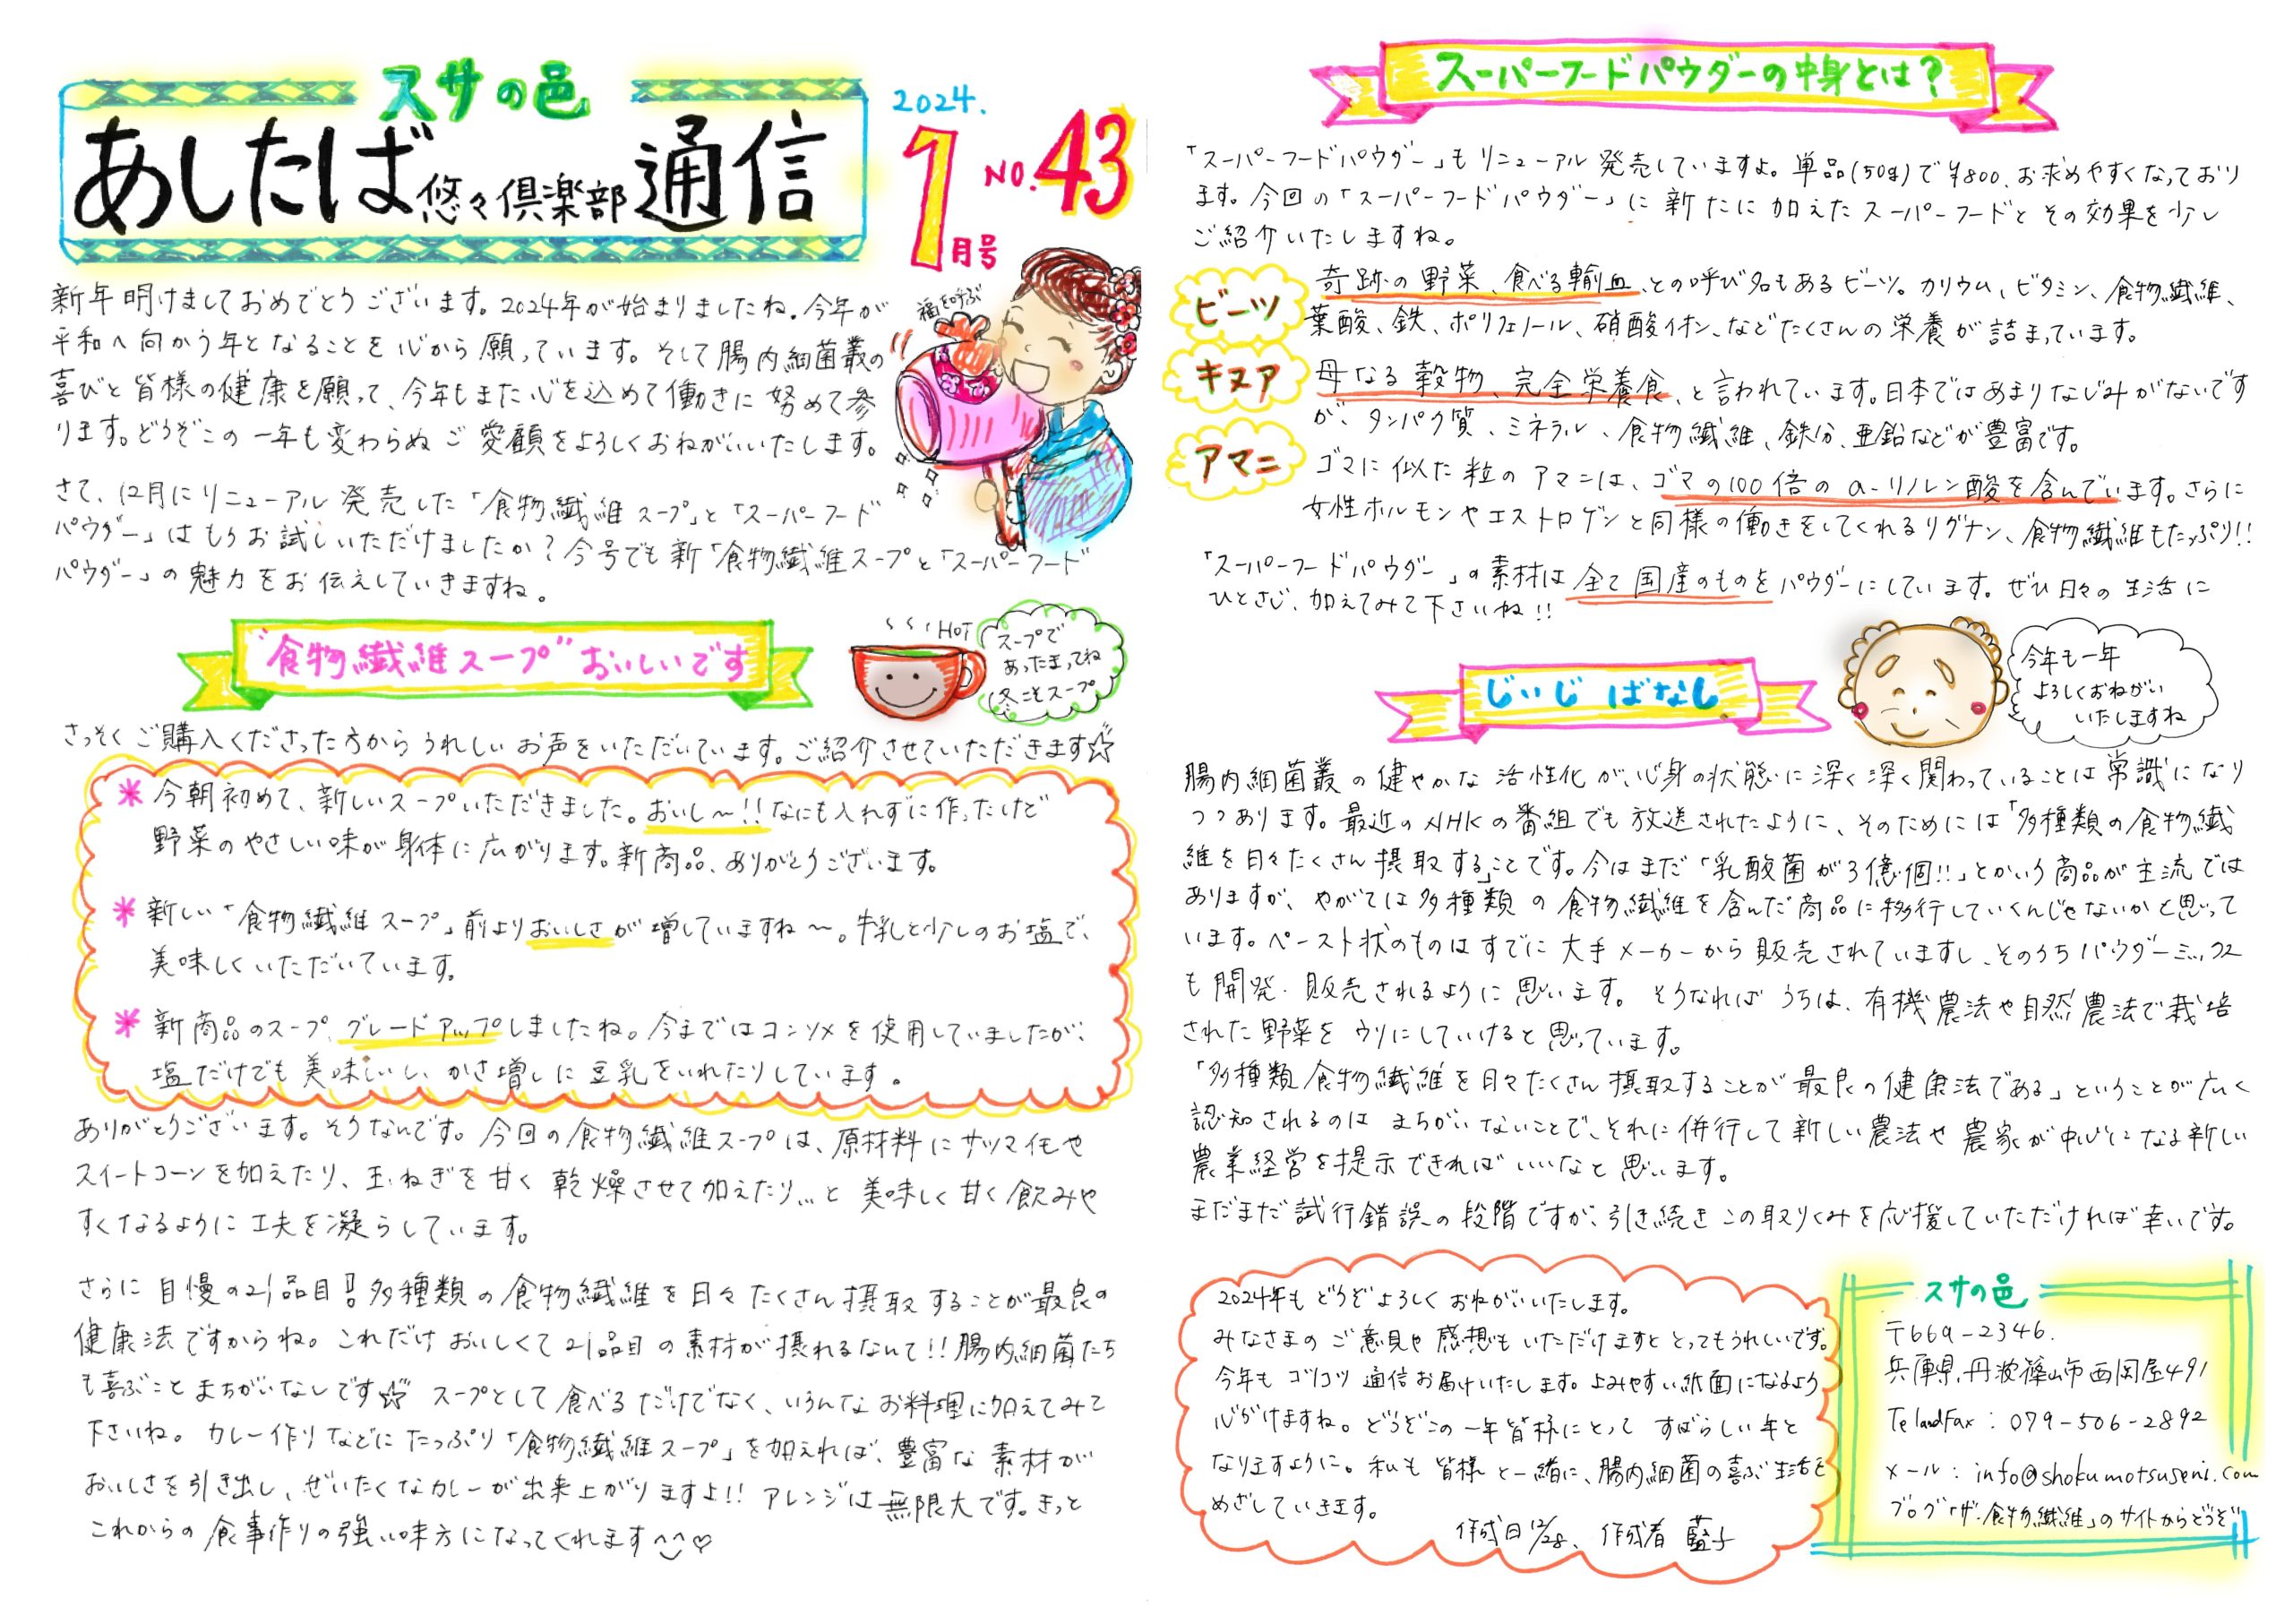 スサの邑
あしたば悠々倶楽部通信
2024.
1月号
NO.43
福を呼ぶ
新年明けましておめでとうございます。2024年が始まりましたね。今年が
平和へ向かう年となることを心から願っています。そして腸内細菌叢の
喜びと皆様の健康を願って、今年もまた心を込めて働きに努めて参
ります。どうぞこの一年も変わらぬご愛顧をよろしくおねがいいたします。
さて、12月にリニューアル発売した「食物繊維スープ」と「スーパーフード
パウダー」はもうお試しいただけましたか?今号でも新「食物繊維スープと「スーパーフード
パウダー」の魅力をお伝えしていきますね。
"食物繊維スープ"おいしいです
HOT
スープで
あったまってね
冬こそスープ
さっそくご購入くださった方からうれしいお声をいただいています。ご紹介させていただきます☆
* 今朝初めて、新しいスープいただきました。おいし〜!!なにも入れずに作ったけど
野菜のやさしい味が身体に広がります。新商品、ありがとうございます。
* 新しい「食物繊維スープ」前よりおいしさが増していますね〜。牛乳と少しのお塩で、
美味しくいただいています。
* 新商品のスープ、グレードアップしましたね。今まではコンソメを使用していましたが、
塩だけでも美味しいし、かさ増しに豆乳をいれたりしています。
ありがとうございます。そうなんです。今回の食物繊維スープは、原材料にサツマイモや
スイートコーンを加えたり、玉ねぎを甘く乾燥させて加えたり…と美味しく甘く飲みや
すくなるように工夫を凝らしています。
さらに自慢の21品目!!多種類の食物繊維を日々たくさん摂取することが最良の
健康法ですからね。これだけおいしくて21品目の素材が摂れるなんて!!腸内細菌たち
も喜ぶことまちがいなしです☆ スープとして食べるだけでなく、いろんなお料理に加えてみて
下さいね。カレー作りなどにたっぷり「食物繊維スープ」を加えれば、豊富な素材が
おいしさを引き出し、ぜいたくなカレーが出来上がりますよ!!アレンジは無限大です。きっと
これからの食事作りの強い味方になってくれます^^♡
スーパーフードパウダーの中身とは?
「スーパーフードパウダー」もリニューアル発売していますよ。単品(50g)で¥800、お求めやすくなっており
ます。今回の「スーパーフードパウダー」に新たに加えたスーパーフードとその効果を少し
ご紹介いたしますね。
ビーツ
奇跡の野菜、食べる輸血、との呼び名もあるビーツ。カリウム、ビタミン、食物繊維、
葉酸、鉄、ポリフェノール、硝酸イオン、などたくさんの栄養が詰まっています。
キヌア
母なる穀物、完全栄養食、と言われています。日本ではあまりなじみがないです
が、タンパク質、ミネラル、食物繊維、鉄分、亜鉛などが豊富です。
アマニ
ゴマに似た粒のアマニは、ゴマの100倍のα-リノレン酸を含んでいます。さらに
女性ホルモンやエストロゲンと同様の働きをしてくれるリグナン、食物繊維もたっぷり!!
「スーパーフードパウダー」の素材は全て国産のものをパウダーにしています。ぜひ日々の生活に
ひとさじ、加えてみて下さいね!!
じいじ ばなし
今年も一年
よろしくおねがい
いたしますね
腸内細菌叢の健やかな活性化が、心身の状態に深く深く関わっていることは常識になり
つつあります。最近のNHKの番組でも放送されたように、そのためには「多種類の食物繊
維を日々たくさん摂取する」ことです。今はまだ「乳酸菌が3億個!!」とかいう商品が主流では
ありますが、やがては多種類の食物繊維を含んだ商品に移行していくんじゃないかと思って
います。ペースト状のものはすでに大手メーカーから販売されていますし、そのうちパウダーミックス
も開発・販売されるように思います。そうなればうちは、有機農法や自然農法で栽培
された野菜をウリにしていけると思っています。
「多種類食物繊維を日々たくさん摂取することが最良の健康法である」ということが広く
認知されるのはまちがいないことで、それに併行して新しい農法や農家が中心になる新しい
農業経営を提示できればいいなと思います。
まだまだ試行錯誤の段階ですが、引き続きこの取りくみを応援していただければ幸いです。
2024年もどうぞよろしくおねがいいたします。
みなさまのご意見や感想もいただけますととってもうれしいです。
今年もコツコツ通信お届けいたします。よみやすい紙面になるよう
心がけますね。どうぞこの一年皆様にとってすばらしい年と
なりますように。私も皆様と一緒に、腸内細菌の喜ぶ生活を
めざしていきます。
作成日12/28、作成者 藍子
スサの邑
〒669-2346.
兵庫県丹波篠山市西岡屋491
Tel and Fax : 079-506-2892
メール : info@shokumotsuseni.com
ブログ「ザ・食物繊維」のサイトからどうぞ